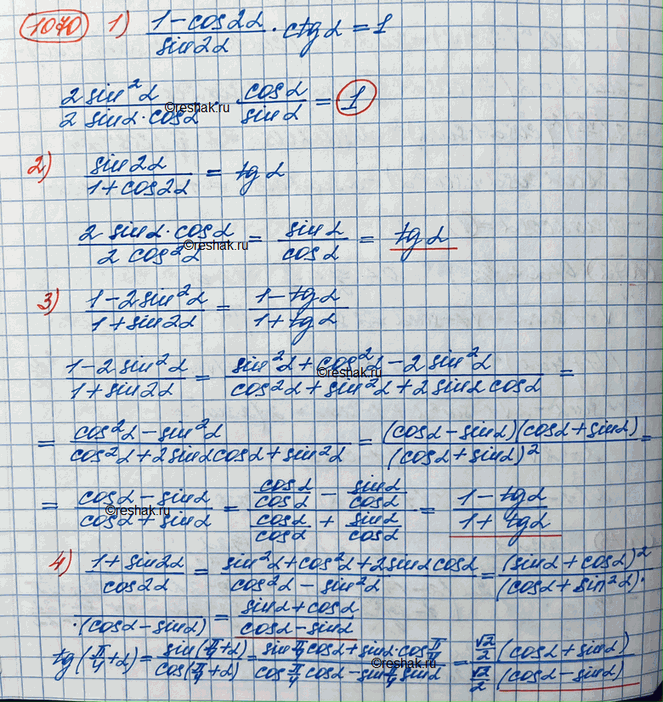 1070 1) (1-cos2α)/(sin2α) · ctgα = 1
(2sin²α)/(2sinα·cosα) · cosα/sinα = 1
©reshak.ru
2) sin2α/(1+cos2α) = tgα
(2sinα·cosα)/(2cos²α) = sinα/cosα = tgα
©reshak.ru
3) (1-2sin²α)/(1+sin2α) = (1-tgα)/(1+tgα)
(1-2sin²α)/(1+sin2α) = (sin²α+cos²α-2sin²α)/(cos²α+sin²α+2sinαcosα) =
©reshak.ru
= (cos²α-sin²α)/(cos²α+2sinαcosα+sin²α) = ((cosα-sinα)(cosα+sinα))/(cosα+sinα)² =
= (cosα-sinα)/(cosα+sinα) = (cosα/cosα - sinα/cosα)/(cosα/cosα + sinα/cosα) = (1-tgα)/(1+tgα)
©reshak.ru
4) (1+sin2α)/cos2α = (sin²α+cos²α+2sinαcosα)/(cos²α-sin²α) = (sinα+cosα)²/(cosα+sin²α)·
·(cosα-sinα) = (sinα+cosα)/(cosα-sinα)
tg(π/4+α) = sin(π/4+α)/cos(π/4+α) = (sinπ/4cosα+sinα·cosπ/4)/(cosπ/4cosα-sinπ/4sinα) = (√2/2(cosα+sinα))/(√2/2(cosα-sinα))
©reshak.ru